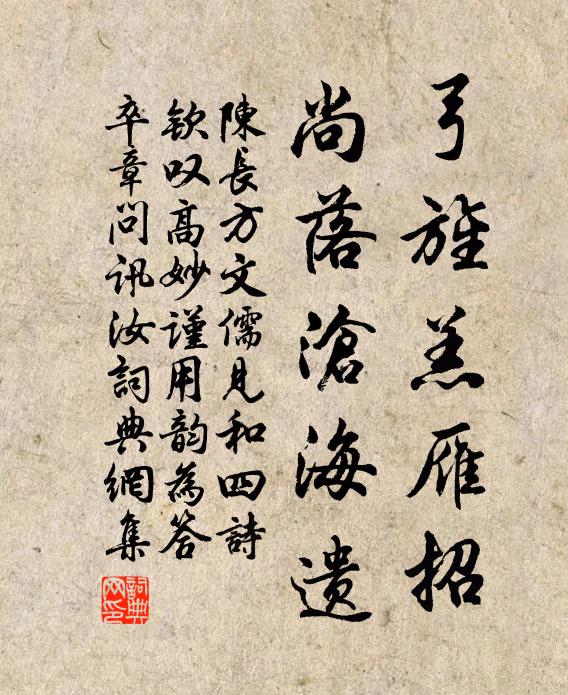 弓旌羔雁招
尚落滄海遺
陳長方文儒見和四詩
欽叹高妙謹用韵為答
卒章問訊汝詞典網集
詞典網印